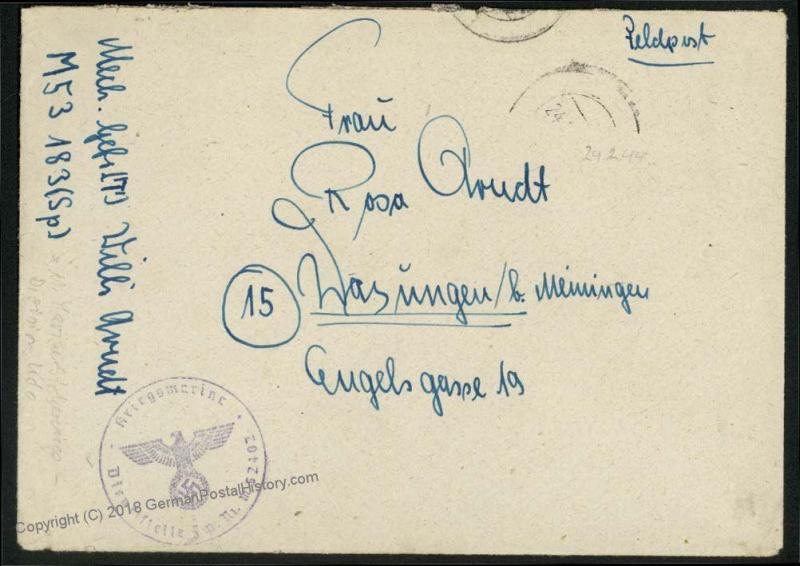 Feldpost
Frau
Rosa Arndt
15 Wasungen/b. Meiningen
Engelsgasse 19
Mech. Gefr. Willi Arndt
M 53 183 (Sp)
24
24.2.44
Kriegsmarine
Dienststelle F.p. Nr.
Copyright (C) 2018 GermanPostalHistory.com